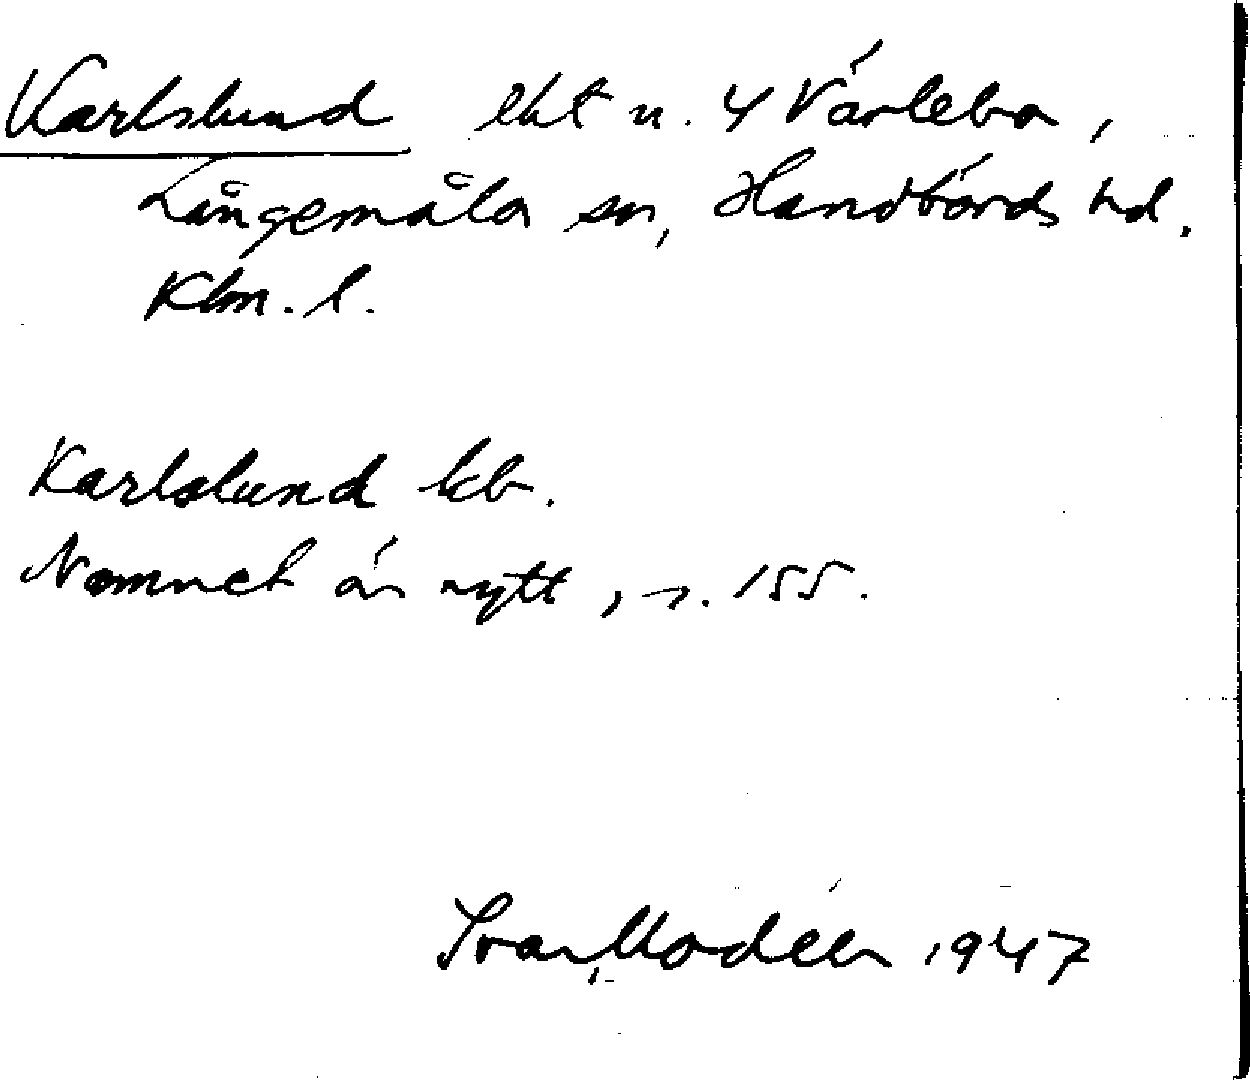 Karlslund lht n. 4 Värlebo,
Långemåla sn, Handbörds hd.
Klm. l.
Karlslund kb.
Namnet är nytt, s. 155.
Ivar Modéer 1947